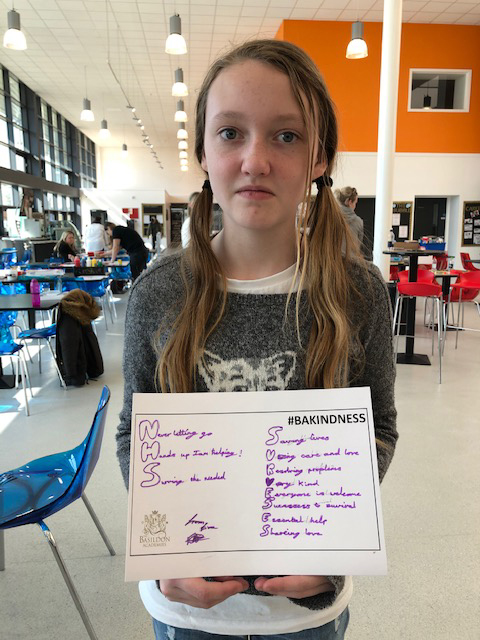 #BAKINDNESS
Never letting go
up I am helping!
the needed
Saving lives
Using care and love
problems
Very Kind
Everyone is welcome
to survival
Essential help
love
BASILDON
ACADEMIES
from